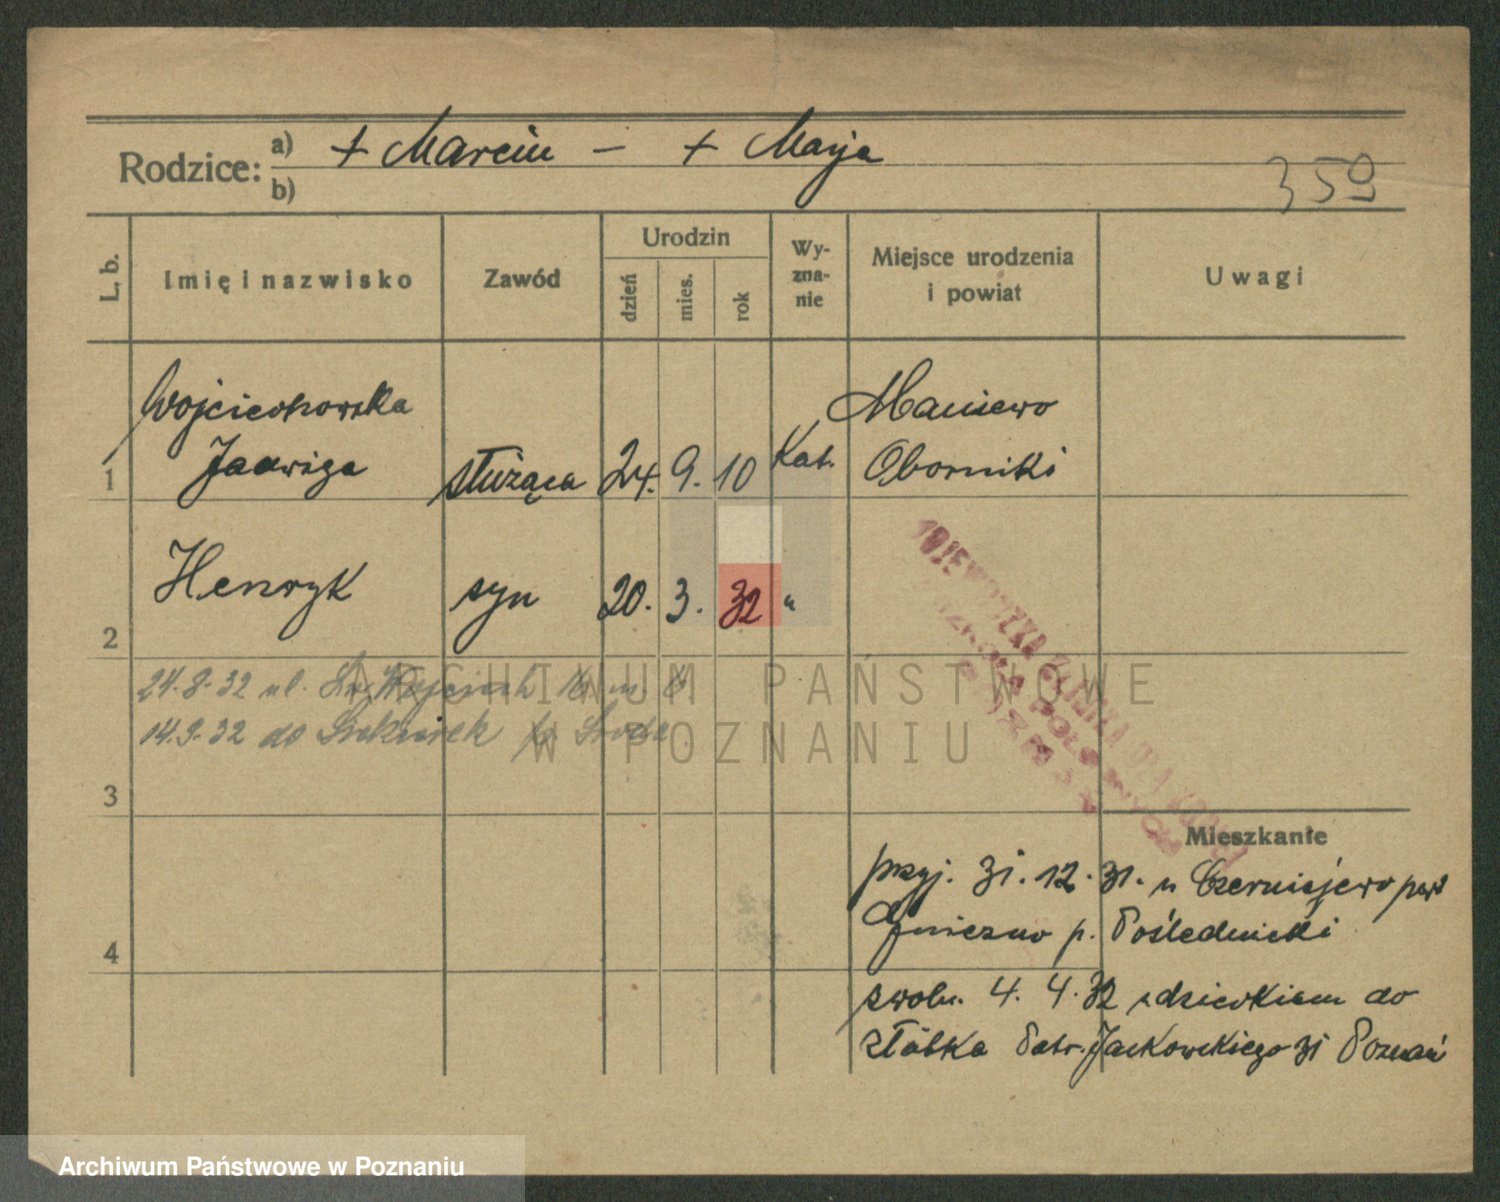 Rodzice: a) + Marcin – + Marja
b)
359
L. b.
Imię i nazwisko
Zawód
Urodzin
dzień
mies.
rok
Wy-
zna-
nie
Miejsce urodzenia
i powiat
Uwagi
Wojciechowska
Jadwiga
1
służąca
24. 9. 10
Kat.
Maniewo
Oborniki
Henryk
2
syn
20. 3. 32
"
24.8.32 ul. Św. Wojciech 16 m. 8
14.9.32 do
3
Mieszkanie
przyj. 31.12.31. u Czerniejewo pow
Gniezno p. Poślednicki
4
zwoln. 4. 4. 32 z dzieckiem do
żłóbka Jackowskiego 31 Poznań
ARCHIWUM PAŃSTWOWE
W POZNANIU
Archiwum Państwowe w Poznaniu